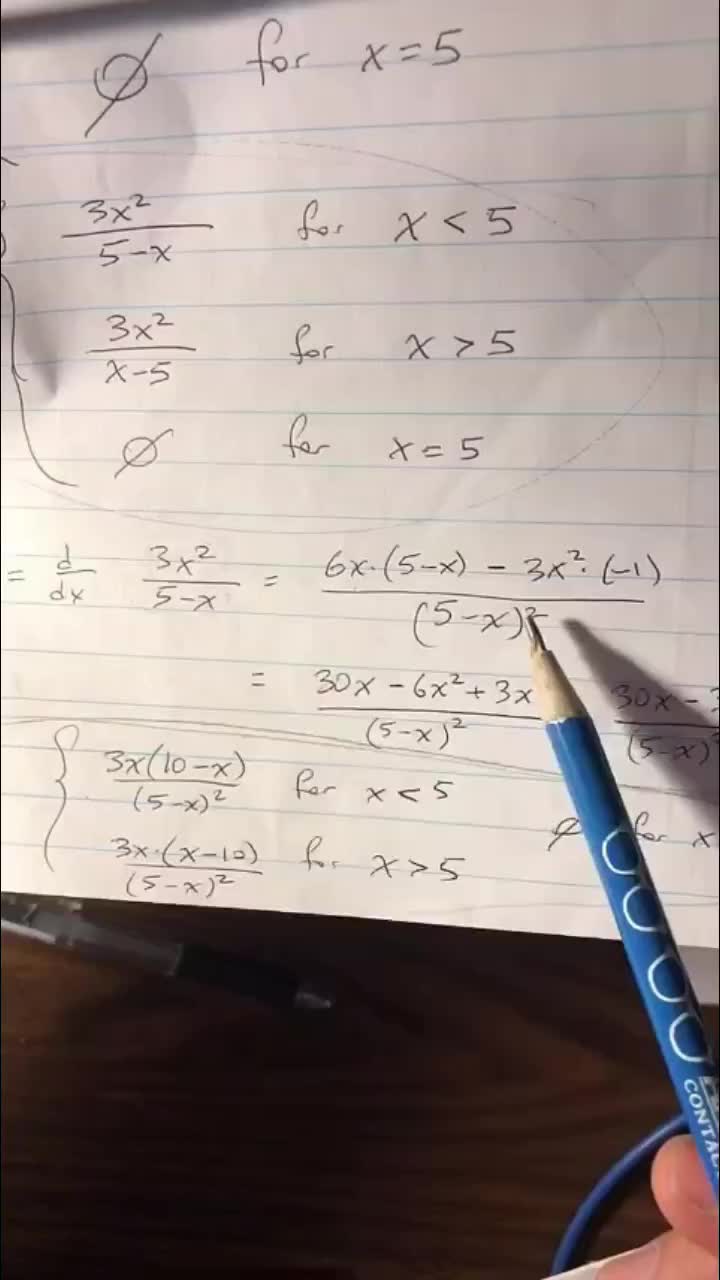 ∅ for x = 5
3x²/(5-x) for x < 5
3x²/(x-5) for x > 5
∅ for x = 5
= d/dx 3x²/(5-x) = (6x·(5-x) - 3x²·(-1))/(5-x)²
= (30x - 6x² + 3x)/(5-x)² 30x - /(5-x)
3x(10-x)/(5-x)² for x < 5
∅ for x
3x·(x-10)/(5-x)² for x > 5